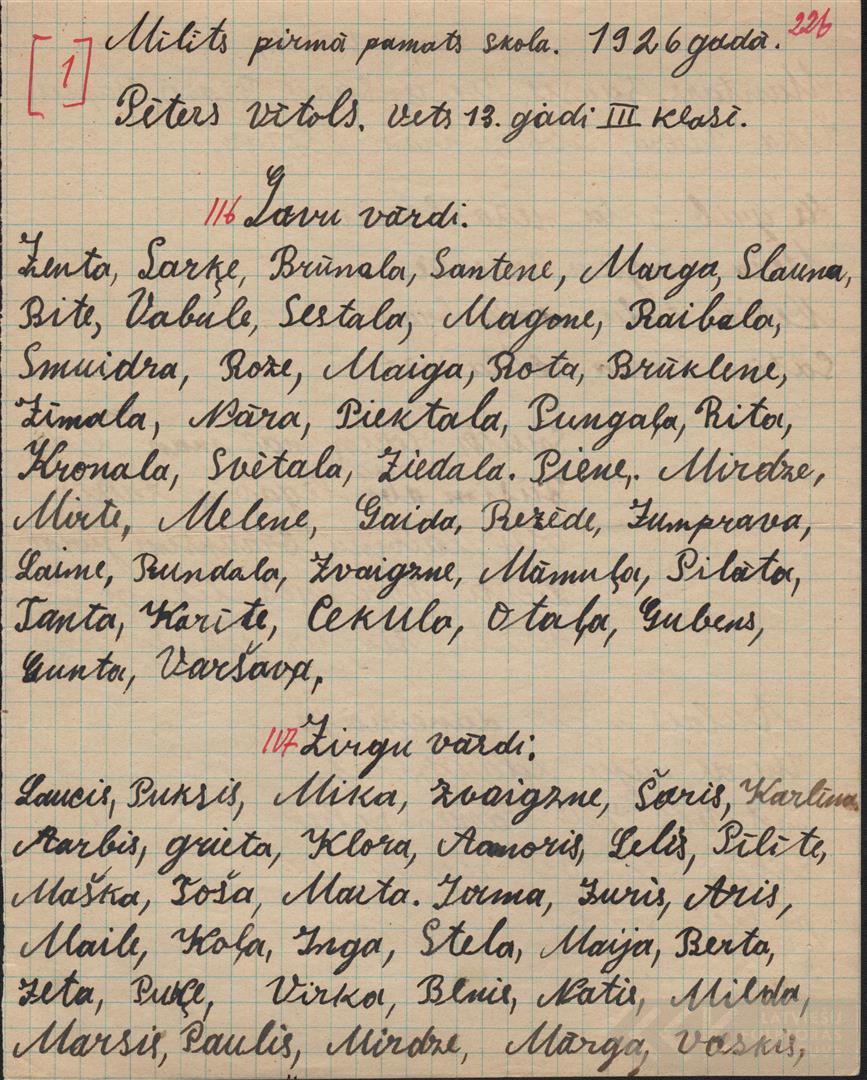 226
[1] Mīlīts pirmā pamats skola. 1926 gadā.
Pēters Vītols. Vets 13. gadi III klasē.
116 Gavu vārdi.
Zenta, Sarķe, Brūnala, Santene, Marga, Slauna,
Bite, Vabule, Sestala, Magone, Raibala,
Smuidra, Rože, Maiga, Rota, Brūklene,
Zīmala, Nāra, Piektala, Pungaļa, Rita,
Kronala, Svētala, Ziedala. Piene,. Mirdze,
Mirte, Melene, Gaida, Rezēde, Zumprava,
Laime, Rundala, Zvaigzne, Māmuļa, Pilāta,
Tanta, Karīte, Cekula, Otaļa, Gubens,
Gunta, Varšava,
117 Zirgu vārdi:
Laucis, Puksis, Mika, Zvaigzne, Šaris, Karlīna
Aarbis, grieta, Klora, Aamoris, Lelis, Pīlīte,
Maška, Toša, Marta. Irma, Juris, Aris,
Maile, Koļa, Inga, Stela, Maija, Berta,
Zeta, Puķe, Virka, Blnis, Natis, Milda,
Marsis, Paulis, Mirdze, Mārga, Vaskis,